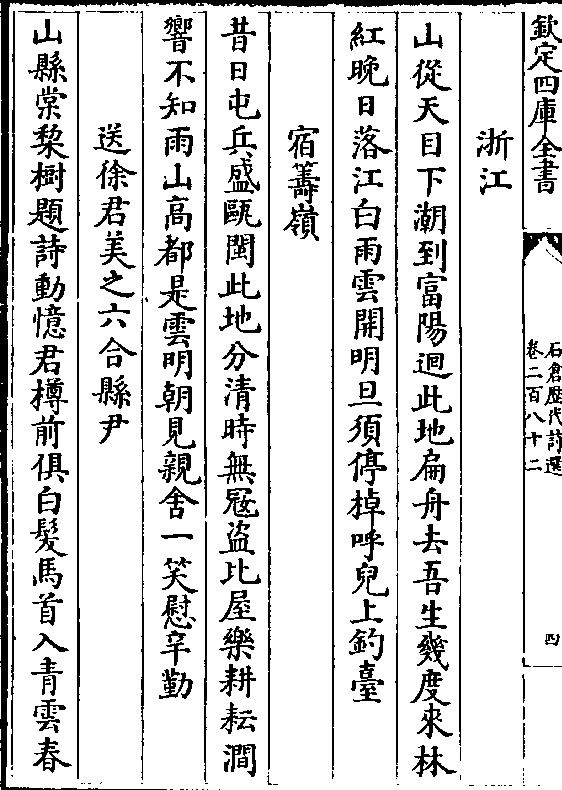 欽定四庫全書
石倉歷代詩選
卷二百八十二
四
浙江
山從天目下潮到富陽迴此地扁舟去吾生幾度來林
紅晚日落江白雨雲開明旦須停棹呼兒上釣臺
宿籌嶺
昔日屯兵盛甌閩此地分清時無寇盗比屋樂耕耘澗
響不知雨山高都是雲明朝見親舎一笑慰辛勤
送徐君美之六合縣尹
山縣棠棃樹題詩動憶君樽前俱白髪馬首入青雲春